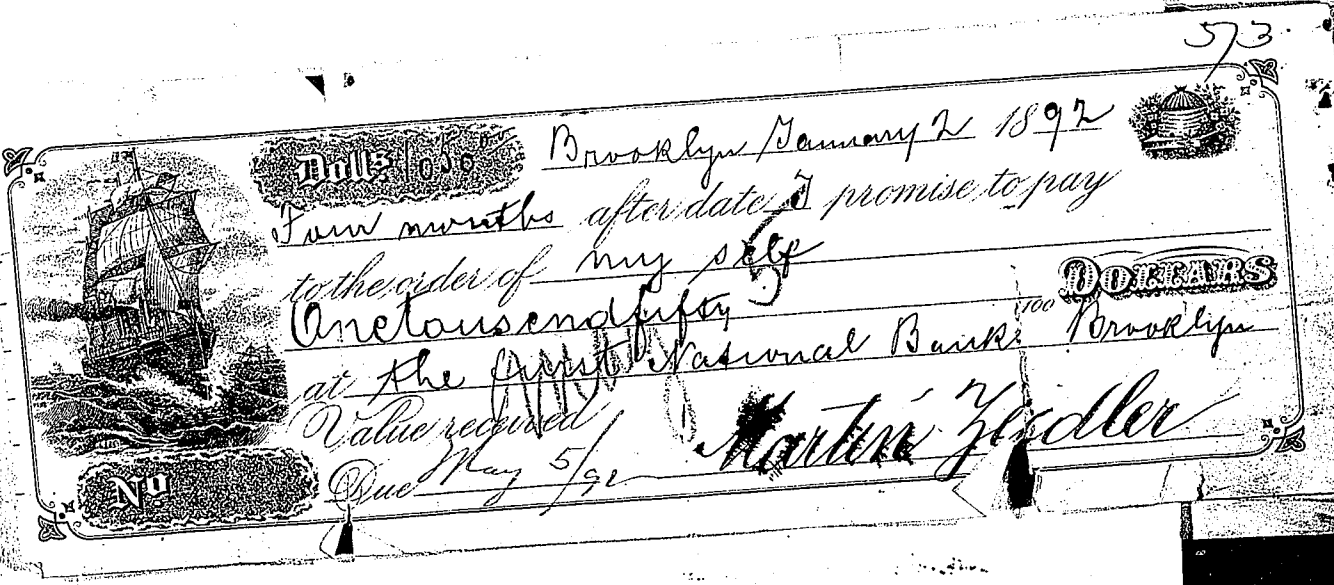 573
Dolls. 1050 00
Brooklyn January 2 1892
Four months after date I promise to pay
to the order of my self
Onetousendfifty 100 DOLLARS
at the first National Bank. Brooklyn
Value received
No Due May 5/92 Martin Zeidler